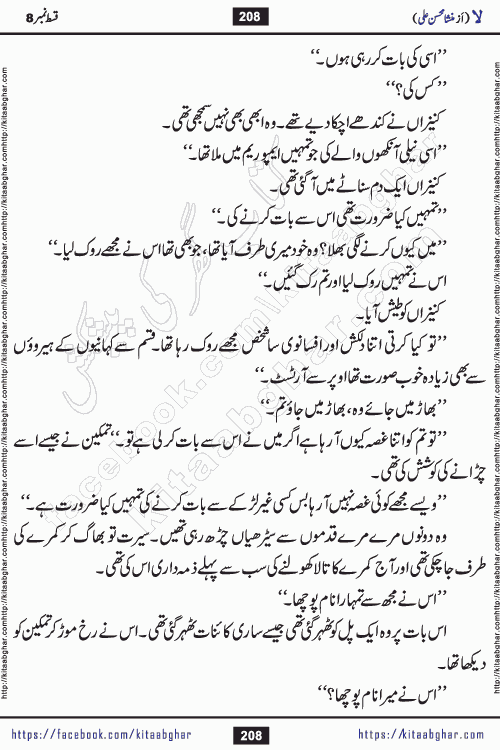 لا (از منشا محسن علی)
208
قسط نمبر 8
”اسی کی بات کر رہی ہوں۔“
”کس کی؟“
کنیزاں نے کندھے اچکا دیے تھے۔ وہ ابھی بھی نہیں سمجھی تھی۔
”اسی نیلی آنکھوں والے کی جو تمہیں ایمپوریم میں ملا تھا۔“
کنیزاں ایک دم سناٹے میں آ گئی تھی۔
”تمہیں کیا ضرورت تھی اس سے بات کرنے کی۔“
”میں کیوں کرنے لگی بھلا؟ وہ خود میری طرف آیا تھا، جو بھی تھا اس نے مجھے روک لیا۔“
اس نے تمہیں روک لیا اور تم رک گئیں۔“
کنیزاں کو طیش آیا۔
”تو کیا کرتی اتنا دلکش اور افسانوی سا شخص مجھے روک رہا تھا۔ قسم سے کہانیوں کے ہیروؤں
سے بھی زیادہ خوب صورت تھا اوپر سے آرٹسٹ۔“
”بھاڑ میں جائے وہ، بھاڑ میں جاؤ تم۔“
”تو تم کو اتنا غصہ کیوں آ رہا ہے اگر میں نے اس سے بات کر لی ہے تو۔“ تمکین نے جیسے اسے
چڑانے کی کوشش کی تھی۔
”ویسے مجھے کوئی غصہ نہیں آ رہا بس کسی غیر لڑکے سے بات کرنے کی تمہیں کیا ضرورت ہے۔“
وہ دونوں مرے مرے قدموں سے سیڑھیاں چڑھ رہی تھیں۔ سیرت تو بھاگ کر کمرے کی
طرف جا چکی تھی اور آج کمرے کا تالا کھولنے کی سب سے پہلے ذمہ داری اس کی تھی۔
”اس نے مجھ سے تمہارا نام پوچھا۔“
اس بات پر وہ ایک پل کو ٹھہر گئی تھی جیسے ساری کائنات ٹھہر گئی تھی۔ اس نے رخ موڑ کر تمکین کو
دیکھا تھا۔
”اس نے میرا نام پوچھا؟“
https://facebook.com/kitaabghar
208
https://kitaabghar.com